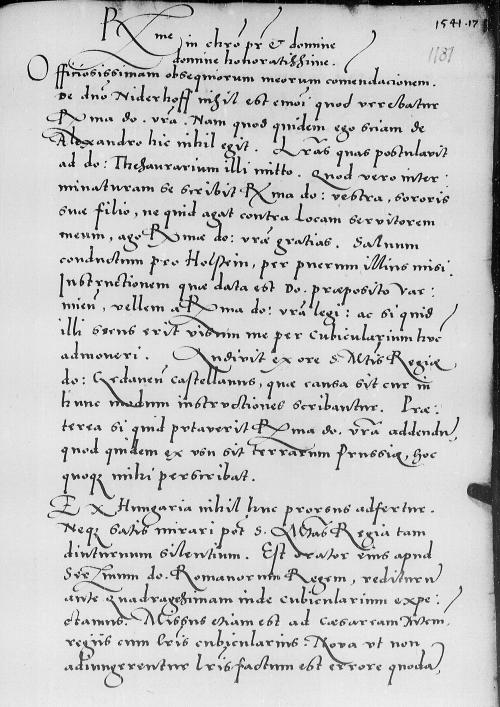 1541.17
1131
Rme in chro pr et domine
domine honoratissime.
Officiosissimam obsequiorum meorum comendacionem.
De dno Niderhoff nihil est emoi quod verebatur
Rma do. vra. Nam quod quidem ego sciam de
Alexandro hic nihil egit. Lras quas postulavit
ad do: Thesaurarium illi mitto. Quod vero inter
minaturam se scribit Rma do: vestra, sororis
suæ filio, ne quid agat contra Locam servitorem
meum, ago Rmæ do: vræ gratias. Salvum
conductum pro Holstein, per puerum illius misi.
Instructionem quæ data est Do. præposito Var:
mien, vellem a Rma do: vra legi: ac si quid
illi deens erit visum me per Cubicularium huc
admoneri. Audivit ex ore S. Mtis Regiæ
do: Gedanen Castellanus, quæ causa sit cur in
hunc modum instructiones scribantur. Præ:
terea si quid putaverit Rma do. vra addendu,
quod quidem ex usu sit terrarum Prussiæ, hoc
quoq mihi perscribat.
Ex Hungaria nihil huc prorsus adfertur.
Neq satis mirari pot S. Mtas Regia tam
diuturnum silentium. Est orator eius apud
Ser mum do. Romanorum Regem, redituru
ante Quadragesimam inde Cubicularium expe:
ctamus. Missus etiam est ad Cæsaream
regiis cum lris cubicularius: Nova ut non
adiungerentur lris factum est errore quoda,